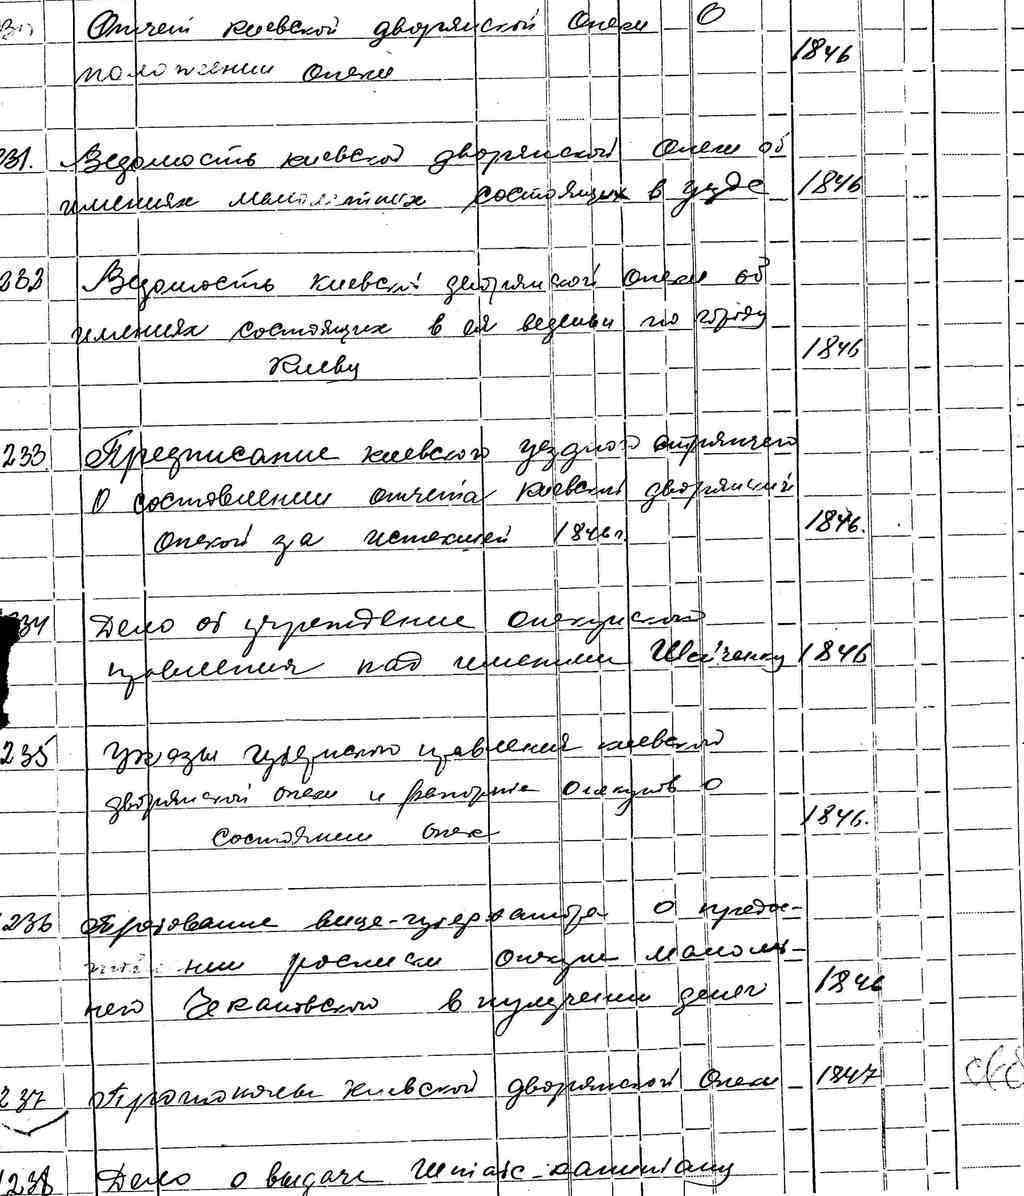 Отчет киевской дворянской опеки О
положении опеки 1846
231. Ведомость киевской дворянской опеки об
имениях малолетних состоящих в уезде 1846
232 Ведомость киевской дворянской опеки об
имениях состоящих в ея ведении по городу
Киеву 1846
233 Предписание киевского уездного стряпчего
О составлении отчета киевской дворянской
опекой за истекший 1846 г. 1846.
234 Дело об учреждение опекунского
правления над имением 1846
235 Указы губернского правления киевской
дворянской опеки и рапорта опекунов о
состоянии опек 1846.
236 вице-губернатора о
росписки опекуна малолет-
него в получении денег 1846
237 Протоколы Киевской дворянской Опеки 1847
238 Дело о выдаче Штабс-капитану